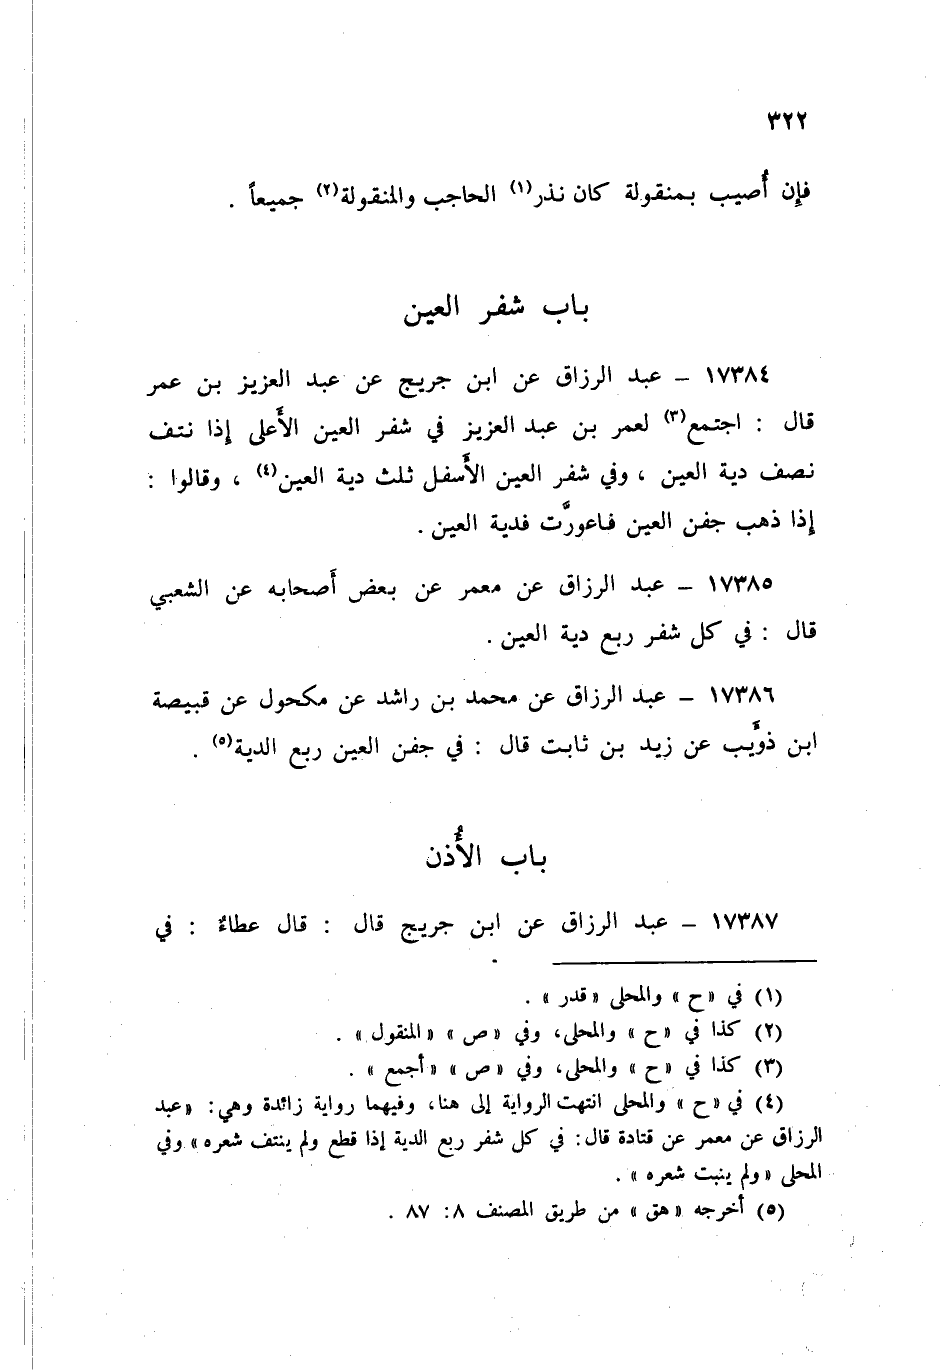 ٣٢٢
فإن أُصيب بمنقولة كان نذر(١) الحاجب والمنقولة(٢) جميعاً .
باب شفر العين
١٧٣٨٤ – عبد الرزاق عن ابن جريج عن عبد العزيز بن عمر
قال : اجتمع(٣) لعمر بن عبد العزيز في شفر العين الأَعلى إذا نتف
نصف دية العين ، وفي شفر العين الأَسفل ثلث دية العين(٤) ، وقالوا :
إذا ذهب جفن العين فاعورَّت فدية العين .
١٧٣٨٥ – عبد الرزاق عن معمر عن بعض أَصحابه عن الشعبي
قال : في كل شفر ربع دية العين .
١٧٣٨٦ – عبد الرزاق عن محمد بن راشد عن مكحول عن قبيصة
ابن ذؤَيب عن زيد بن ثابت قال : في جفن العين ربع الدية(٥) .
باب الأُذن
١٧٣٨٧ – عبد الرزاق عن ابن جريج قال : قال عطاءٌ : في
(١) في «ح» والمحلى «قدر» .
(٢) كذا في «ح» والمحلى، وفي «ص» «المنقول» .
(٣) كذا في «ح» والمحلى، وفي «ص» «أجمع» .
(٤) في «ح» والمحلى انتهت الرواية إلى هنا، وفيهما رواية زائدة وهي: «عبد
الرزاق عن معمر عن قتادة قال: في كل شفر ربع الدية إذا قطع ولم ينتف شعره» وفي
المحلى «ولم ينبت شعره» .
(٥) أخرجه «هق» من طريق المصنف ٨: ٨٧ .